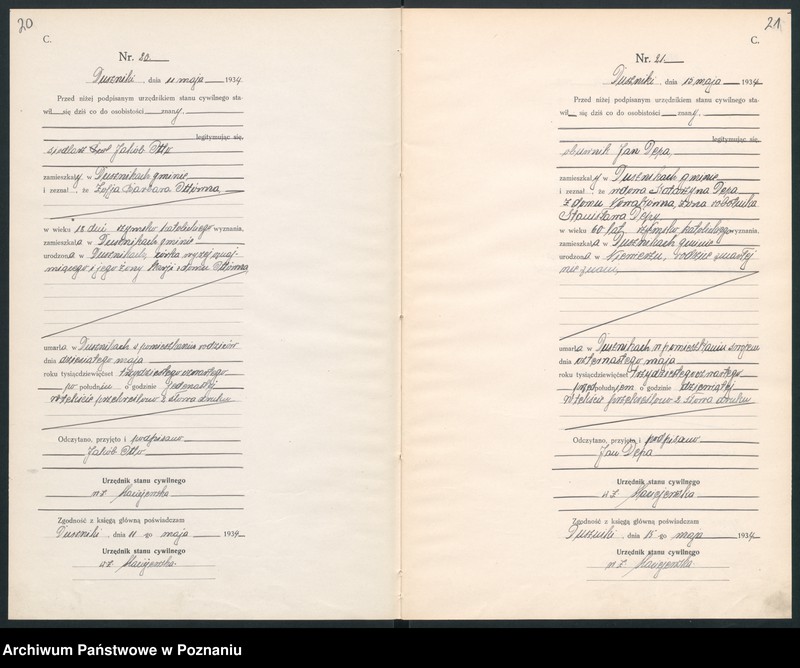 20
C.
Nr. 20.
Duszniki, dnia 11 maja 1934
Przed niżej podpisanym urzędnikiem stanu cywilnego sta-
wił się dziś co do osobistości znany,
legitymując się,
siodlarz Jakób Otto
zamieszkały w Dusznikach gminie
i zeznał, że Zofja Barbara Ottówna,
w wieku 18 dni rzymsko katolickiego wyznania,
zamieszkała w Dusznikach gminie
urodzona w Dusznikach, córka wyżej
i jego żony Marji z domu
umarła w Dusznikach w pomieszkaniu rodziców
dnia dziesiątego maja
roku tysiącdziewięćset trzydziestego czwartego
po południu o godzinie jedenastej
W tekście przekreślono 2 słowa druku
Odczytano, przyjęto i podpisano
Jakób Otto
Urzędnik stanu cywilnego
w z. Maciejewska
Zgodność z księgą główną poświadczam
Duszniki, dnia 11-go maja 1934
Urzędnik stanu cywilnego
w z. Maciejewska.
21
C.
Nr. 21.
Duszniki, dnia 15 maja 1934
Przed niżej podpisanym urzędnikiem stanu cywilnego sta-
wił się dziś co do osobistości znany,
legitymując się,
Jan Depa,
zamieszkały w Dusznikach gminie
i zeznał, że wdowa Katarzyna Depa
z domu żona robotnika
Stanisława Depy
w wieku 60 lat, rzymsko katolickiego wyznania,
zamieszkała w Dusznikach gminie
urodzona w rodzice zmarłej
nie znani,
umarła w Dusznikach w pomieszkaniu swojem
dnia czternastego maja
roku tysiącdziewięćset trzydziestego czwartego
przed południem o godzinie dziewiątej
W tekście przekreślono 2 słowa druku
Odczytano, przyjęto i podpisano
Jan Depa
Urzędnik stanu cywilnego
w z. Maciejewska
Zgodność z księgą główną poświadczam
Duszniki, dnia 15-go maja 1934
Urzędnik stanu cywilnego
w z. Maciejewska
Archiwum Państwowe w Poznaniu